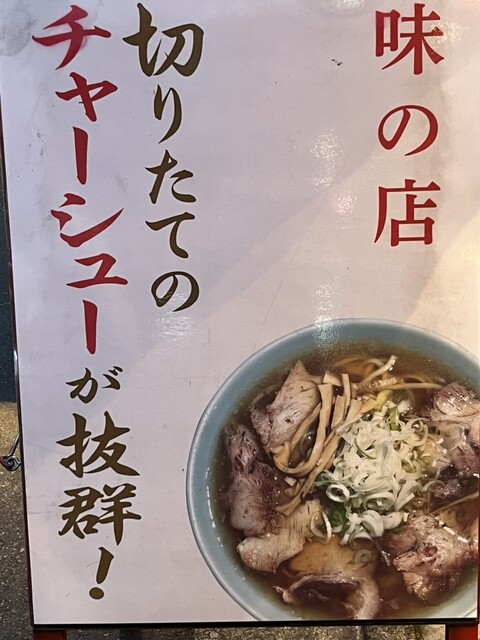 味の店
切りたての
チャーシューが抜群！